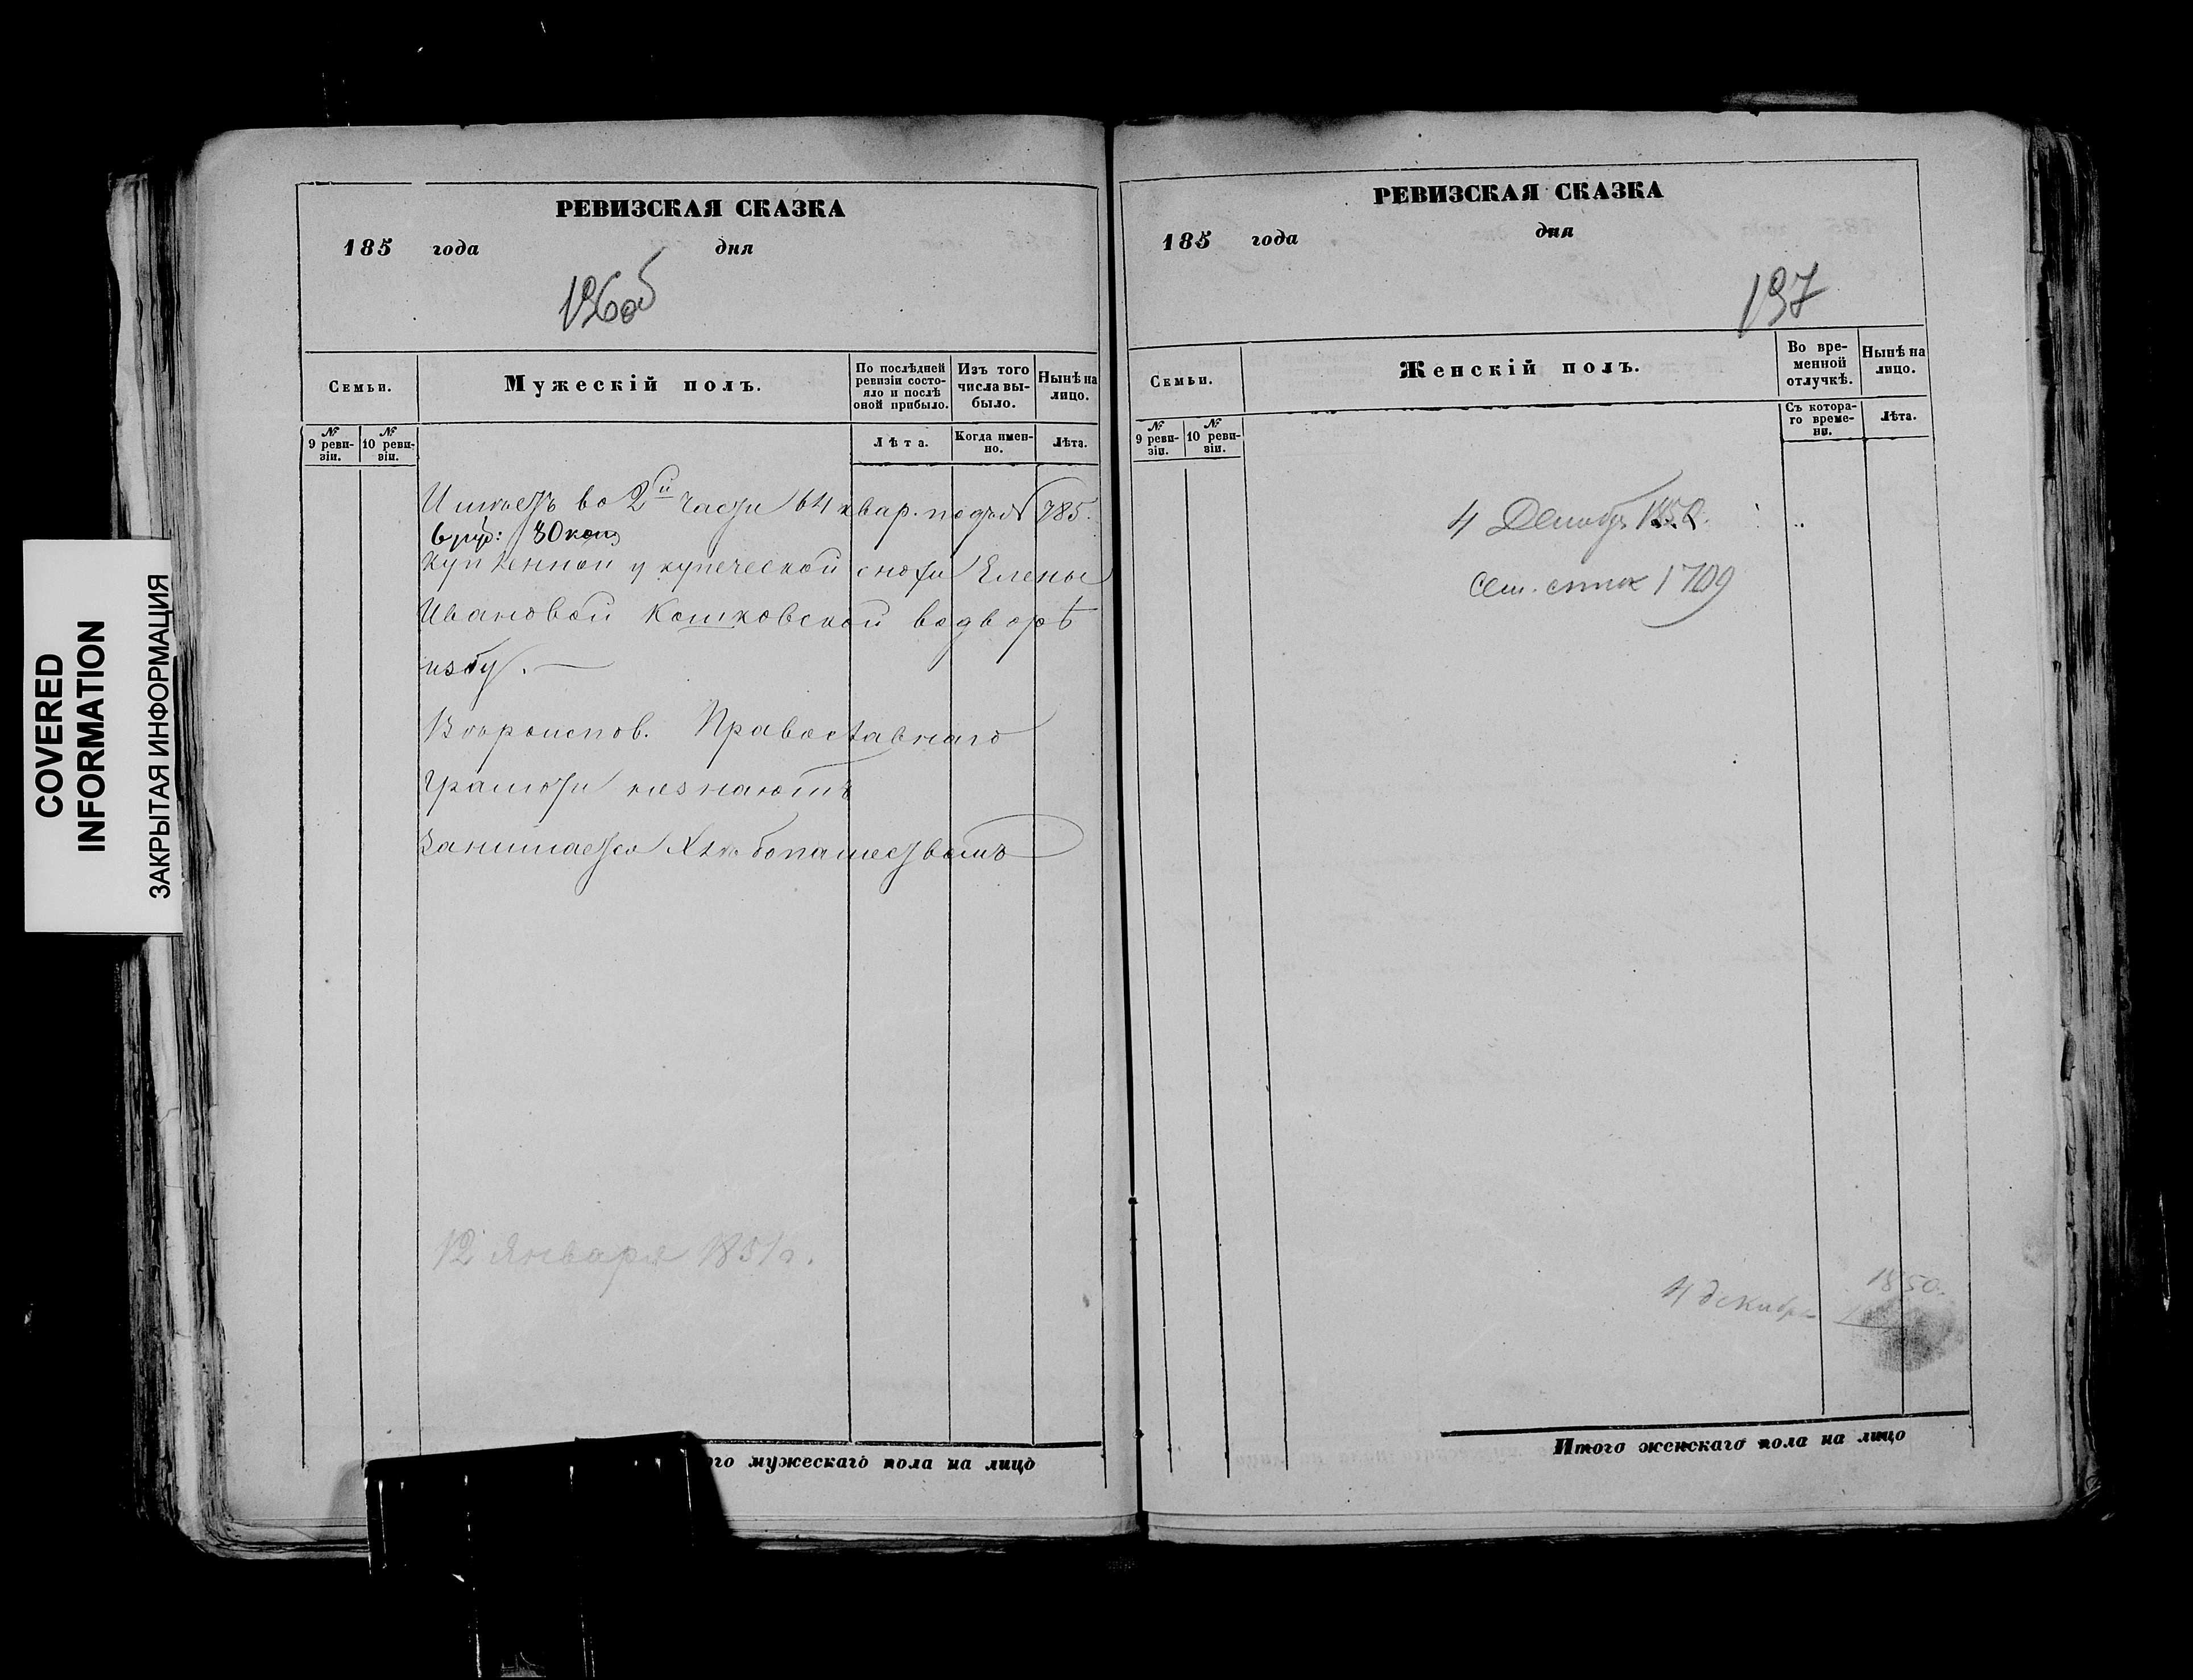 COVERED
INFORMATION
ЗАКРЫТАЯ ИНФОРМАЦИЯ
РЕВИЗСКАЯ СКАЗКА
185 года дня
196об
Семьи.
Мужескій полъ.
По послѣдней ревизіи состо-
яло и послѣ
оной прибыло.
Изъ того
числа вы-
было.
Нынѣ на
лицо.
№
9 реви-
зіи.
№
10 реви-
зіи.
Лѣта.
Когда имен-
но.
Лѣта.
Имѣетъ во 2й части 64 квар. под № 785.
30 коп
купленной у купеческой снохи Елены
Ивановой Кошковской во дворѣ
избу.
Вѣроиспов. Православнаго
Грамоти незнаютъ
Занимается Хлѣбопашествомъ
12 Января 1851 г.
ого мужескаго пола на лицо
РЕВИЗСКАЯ СКАЗКА
185 года дня
197
Семьи.
Женскій полъ.
Во вре-
менной
отлучкѣ.
Нынѣ на
лицо.
№
9 реви-
зіи.
№
10 реви-
зіи.
Съ котора-
го време-
ни.
Лѣта.
4 Декабр 1850.
1709
4 декабря 1850.
Итого женскаго пола на лицо